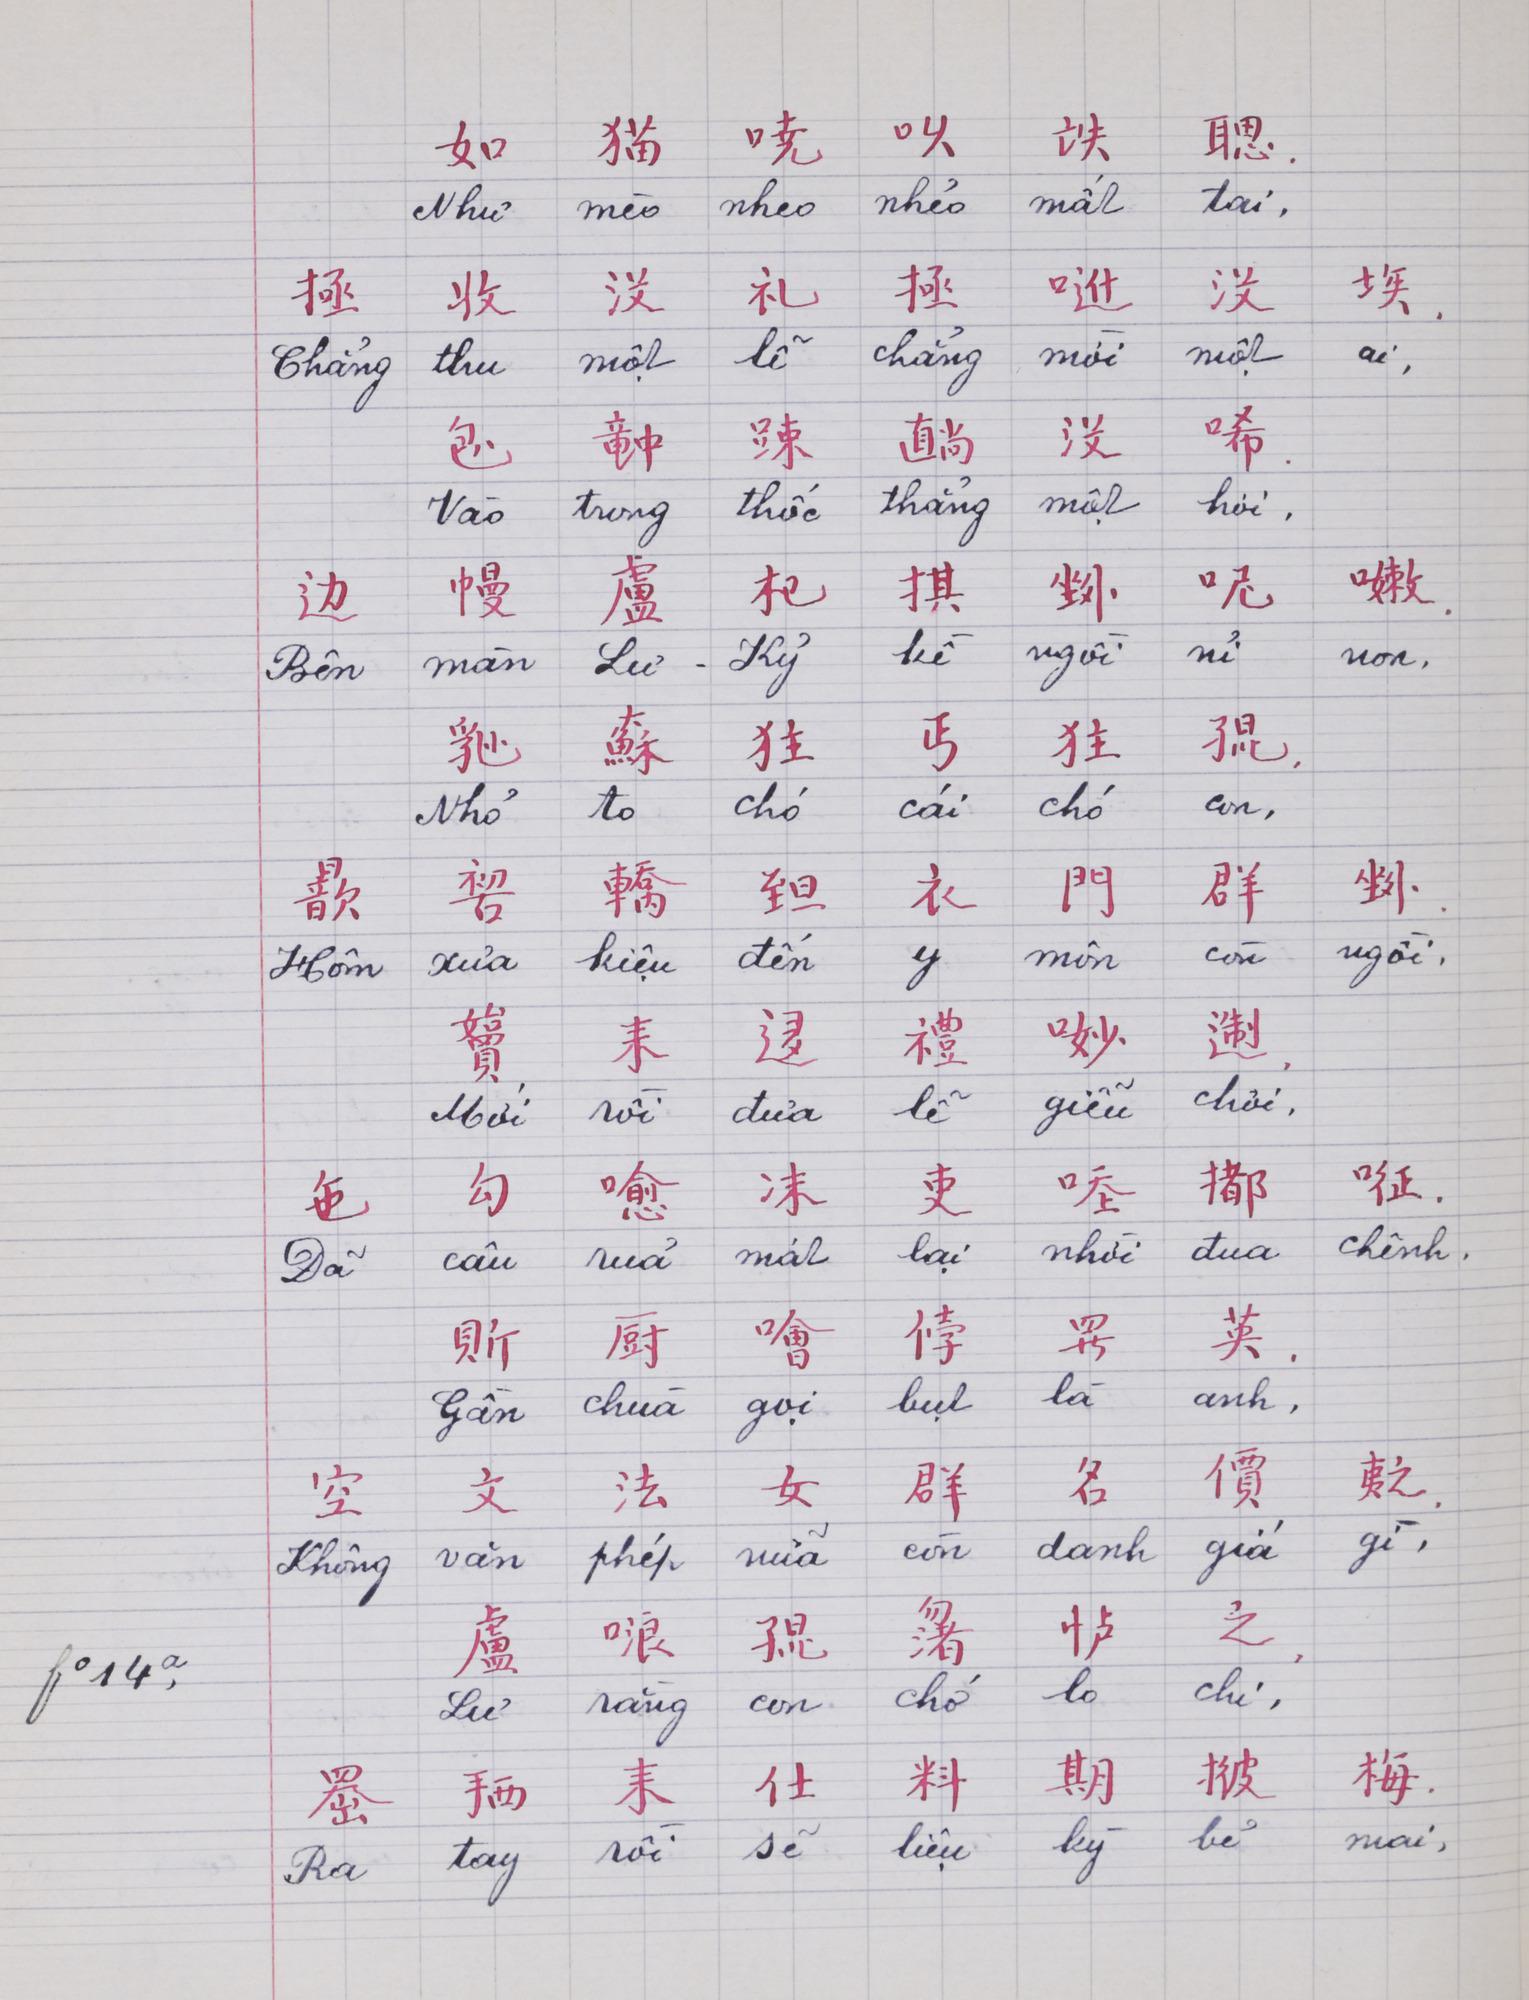 如 猫 哓 呌 𡗋 聰.
Như mèo nheo nhẻo mất tai,
拯 收 没 礼 拯 𠶆 没 埃.
Chẳng thu một lễ chẳng mời một ai,
𠓨 𥪝 踈 𥊣 没 唏.
Vào trong thốc thẳng một hơi,
边 幔 盧 杞 掑 𡎥 呢 嫩.
Bên màn Lư - Kỷ kề ngồi nỉ non,
𡮈 蘇 㹥 丐 㹥 𡥵.
Nhỏ to chó cái chó con,
歆 𠸗 轎 𦤾 衣 門 群 𡎥.
Hôm xưa kiệu đến y môn còn ngồi,
耒 迻 禮 𠱋
Mới rồi đưa lễ giễu chơi,
㐌 勾 沫 吏
Dã câu ruả mát lại nhời đua chênh,
𧵆 厨 噲 侼 𱺵 英.
Gần chuà gọi bụt là anh,
空 文 法 女 群 名 價 之.
Không văn phép nữa còn danh giá gì,
盧 哴 𡥵 㐌 之
fº 14ª,
Lư rằng con chớ lo chi,
𠚢 𢬣 耒 仕 料 期 披 梅.
Ra tay rồi sẽ liệu kỳ bẻ mai,